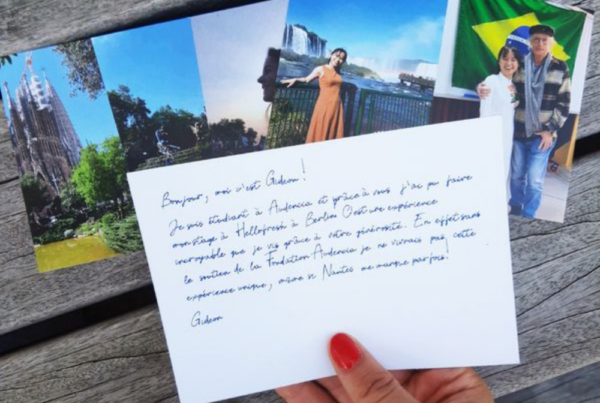 Bonjour, moi c'est Gideon!
Je suis étudiant à Audencia et grâce à vous j'ai pu faire
mon stage à Hellofresh à Berlin C'est une expérience
incroyable que je vis grâce à votre générosité. En effet sans
le soutien de la Fondation Audencia je ne vivrais pas cette
expérience unique, même si Nantes me manque parfois!
Gideon